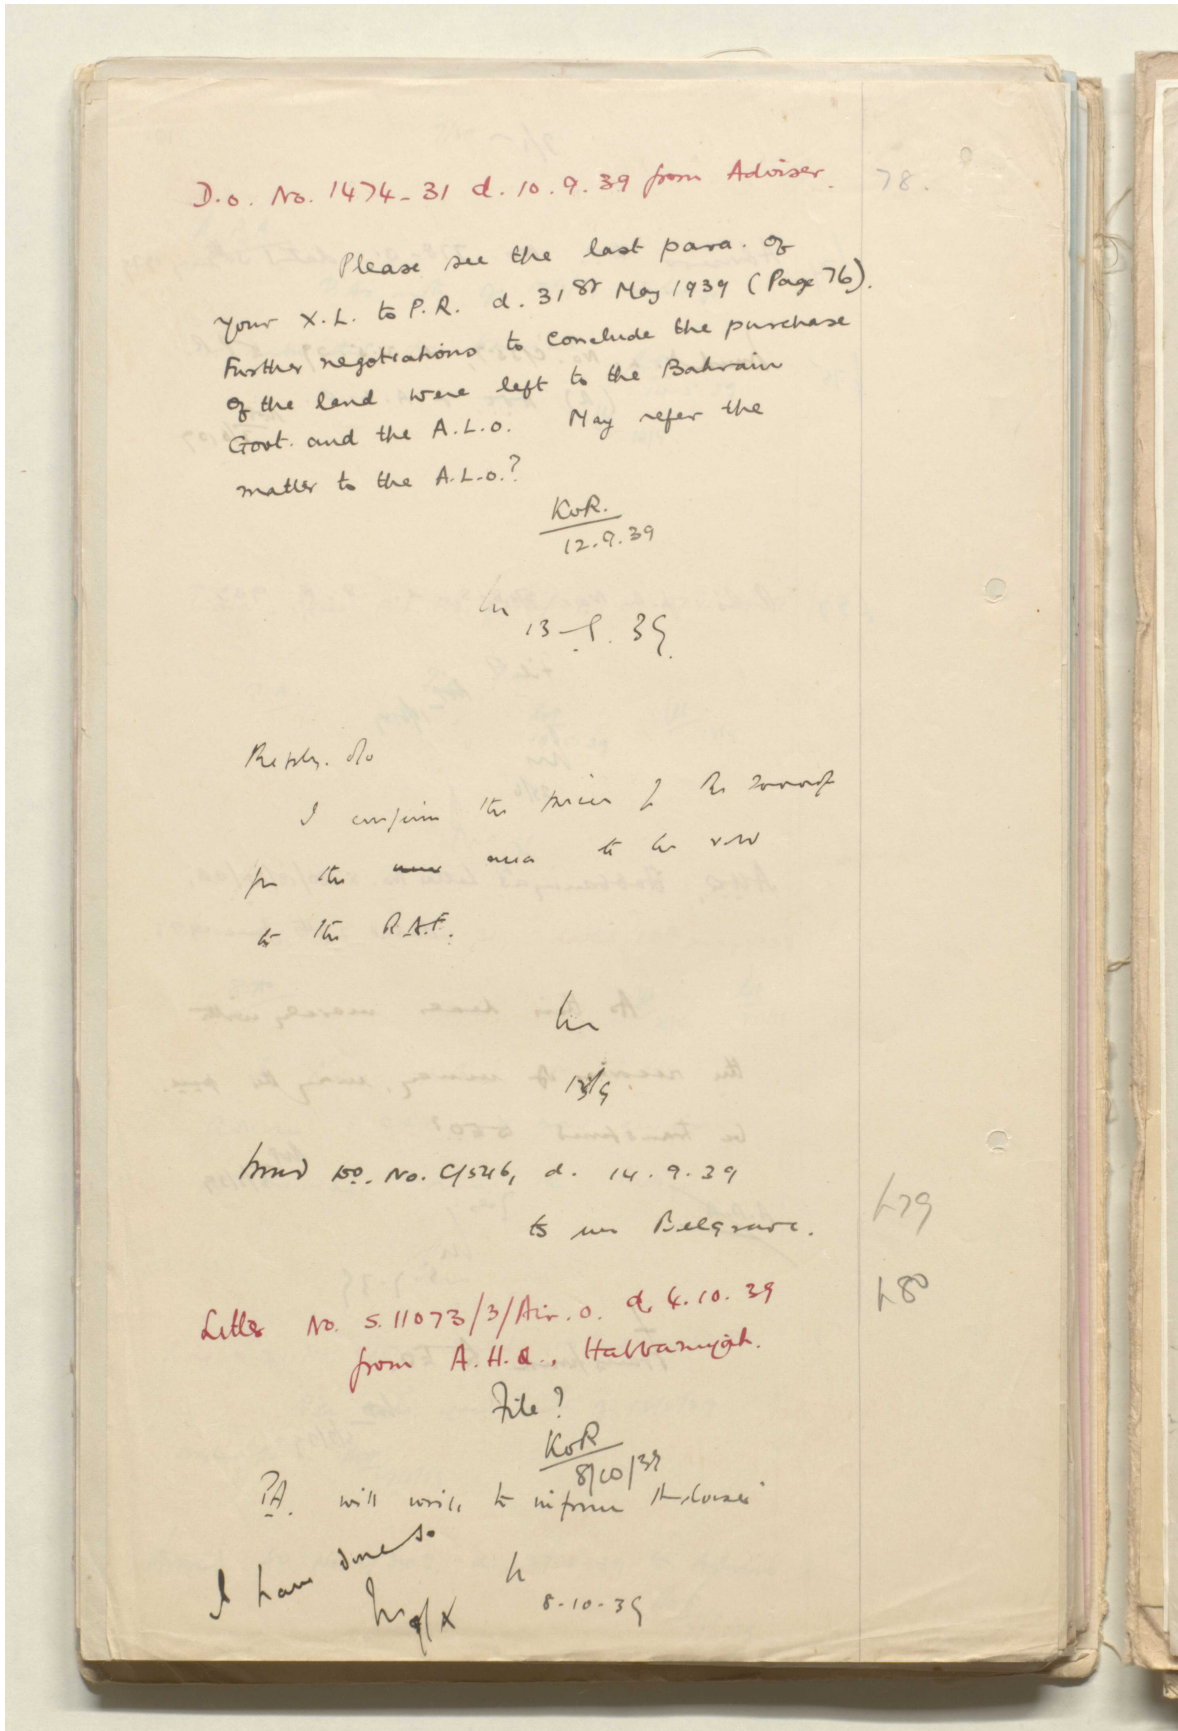 D.O. No. 1474-31 d. 10.9.39 from Adviser. 78.
Please see the last para. of
your X.L. to P.R. d. 31st May 1939 (Page 76).
Further negotiations to conclude the purchase
of the land were left to the Bahrain
Govt. and the A.L.O. May refer the
matter to the A.L.O.?
KoR.
12.9.39
13-9.39
Reply. D/o
I confirm the price of Rs
for the area to be
to the R.A.F.
Issued No. C/546, d. 14.9.39
to Belgrave. 79
Letter No. S.11073/3/Air.O. d. 4.10.39 80
from A.H.Q., Habbaniyah.
File?
KoR
8/10/39
P.A. will write to inform Adviser
I have done so
8-10-39